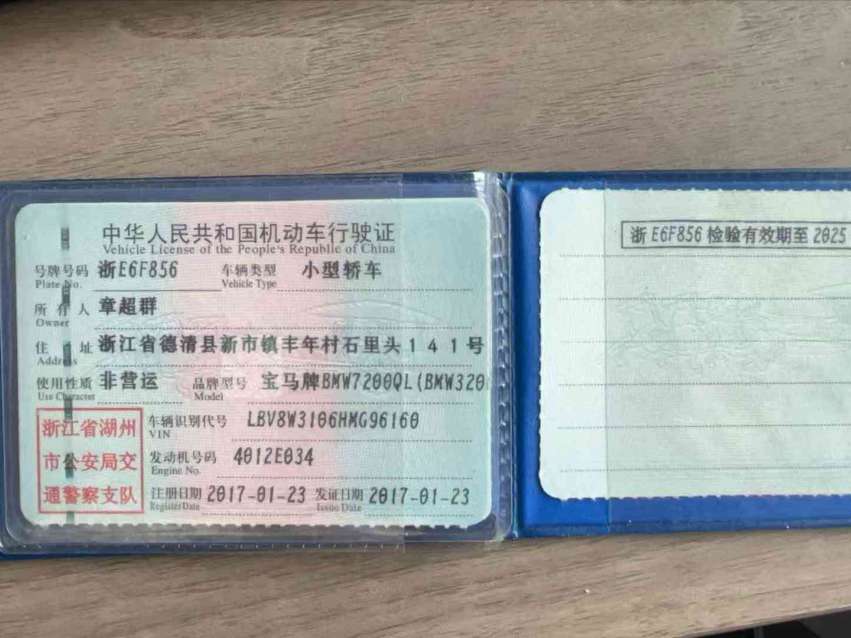 中华人民共和国机动车行驶证
Vehicle License of the People's Republic of China
号牌号码 浙E6F856 车辆类型 小型轿车
Plate No. Vehicle Type
所有人 章超群
Owner
住址 浙江省德清县新市镇丰年村石里头141号
Address
使用性质 非营运 品牌型号 宝马牌BMW7200QL(BMW320
Use Character Model
浙江省湖州
市公安局交
通警察支队
车辆识别代号 LBV8W3106HMG96160
VIN
发动机号码 4012E034
Engine No.
注册日期 2017-01-23 发证日期 2017-01-23
Register Date Issue Date
浙E6F856 检验有效期至 2025